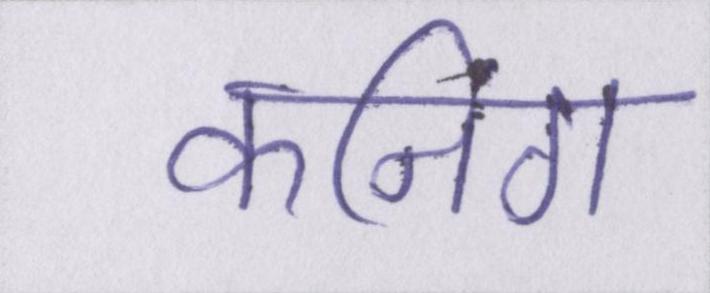 कनिंग